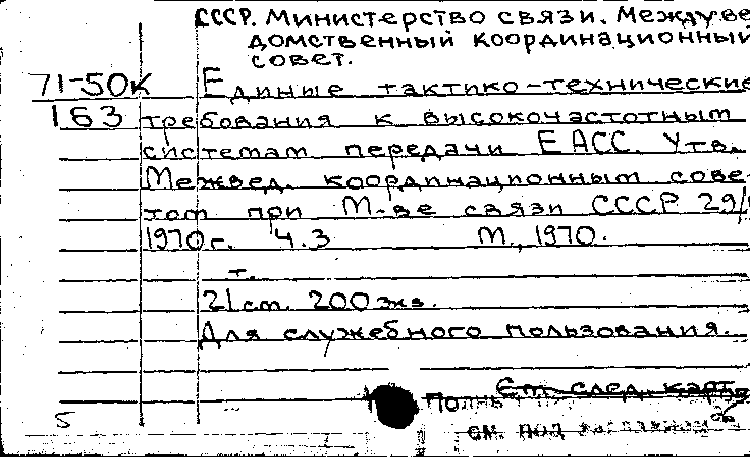 СССР. Министерство связи. Междуве
домственный координационный
совет.
71-50к Единые тактико-технические
163 требования к высокочастотным
системам передачи ЕАСС. Утв.
Межвед. координационным сове-
том при М-ве связи СССР 29/
1970 г. Ч.3 М., 1970.
т.
21 см. 200 экз.
Для служебного пользования.
См. след. карт
Полн
5 см. под